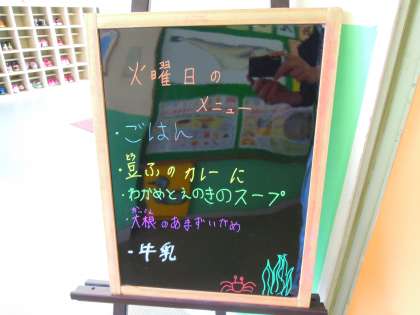 火曜日の
メニュー
・ごはん
・豆ふのカレーに
・わかめとえのきのスープ
・大根のあまずいかめ
・牛乳